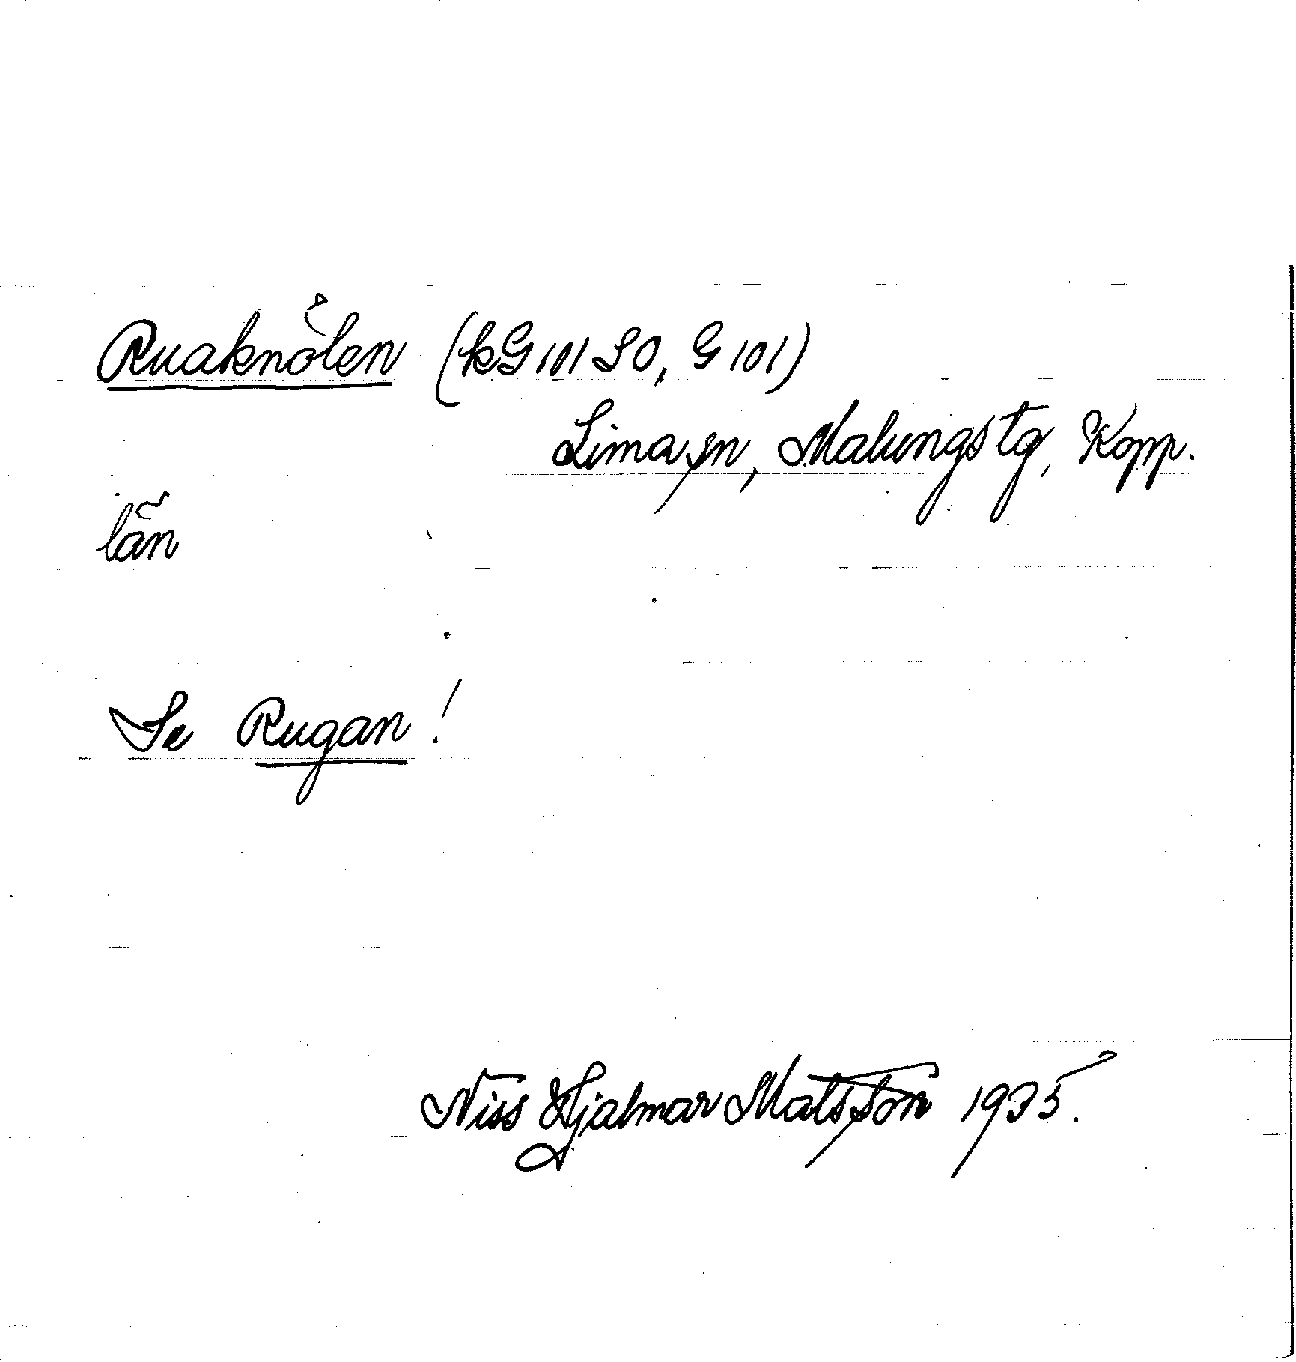 Ruaknôlen (kG 101 SO, G 101)
Lima sn, Malungs tg, Kopp.
län
Se Rugan!
Niss Hjalmar Matsson 1935.